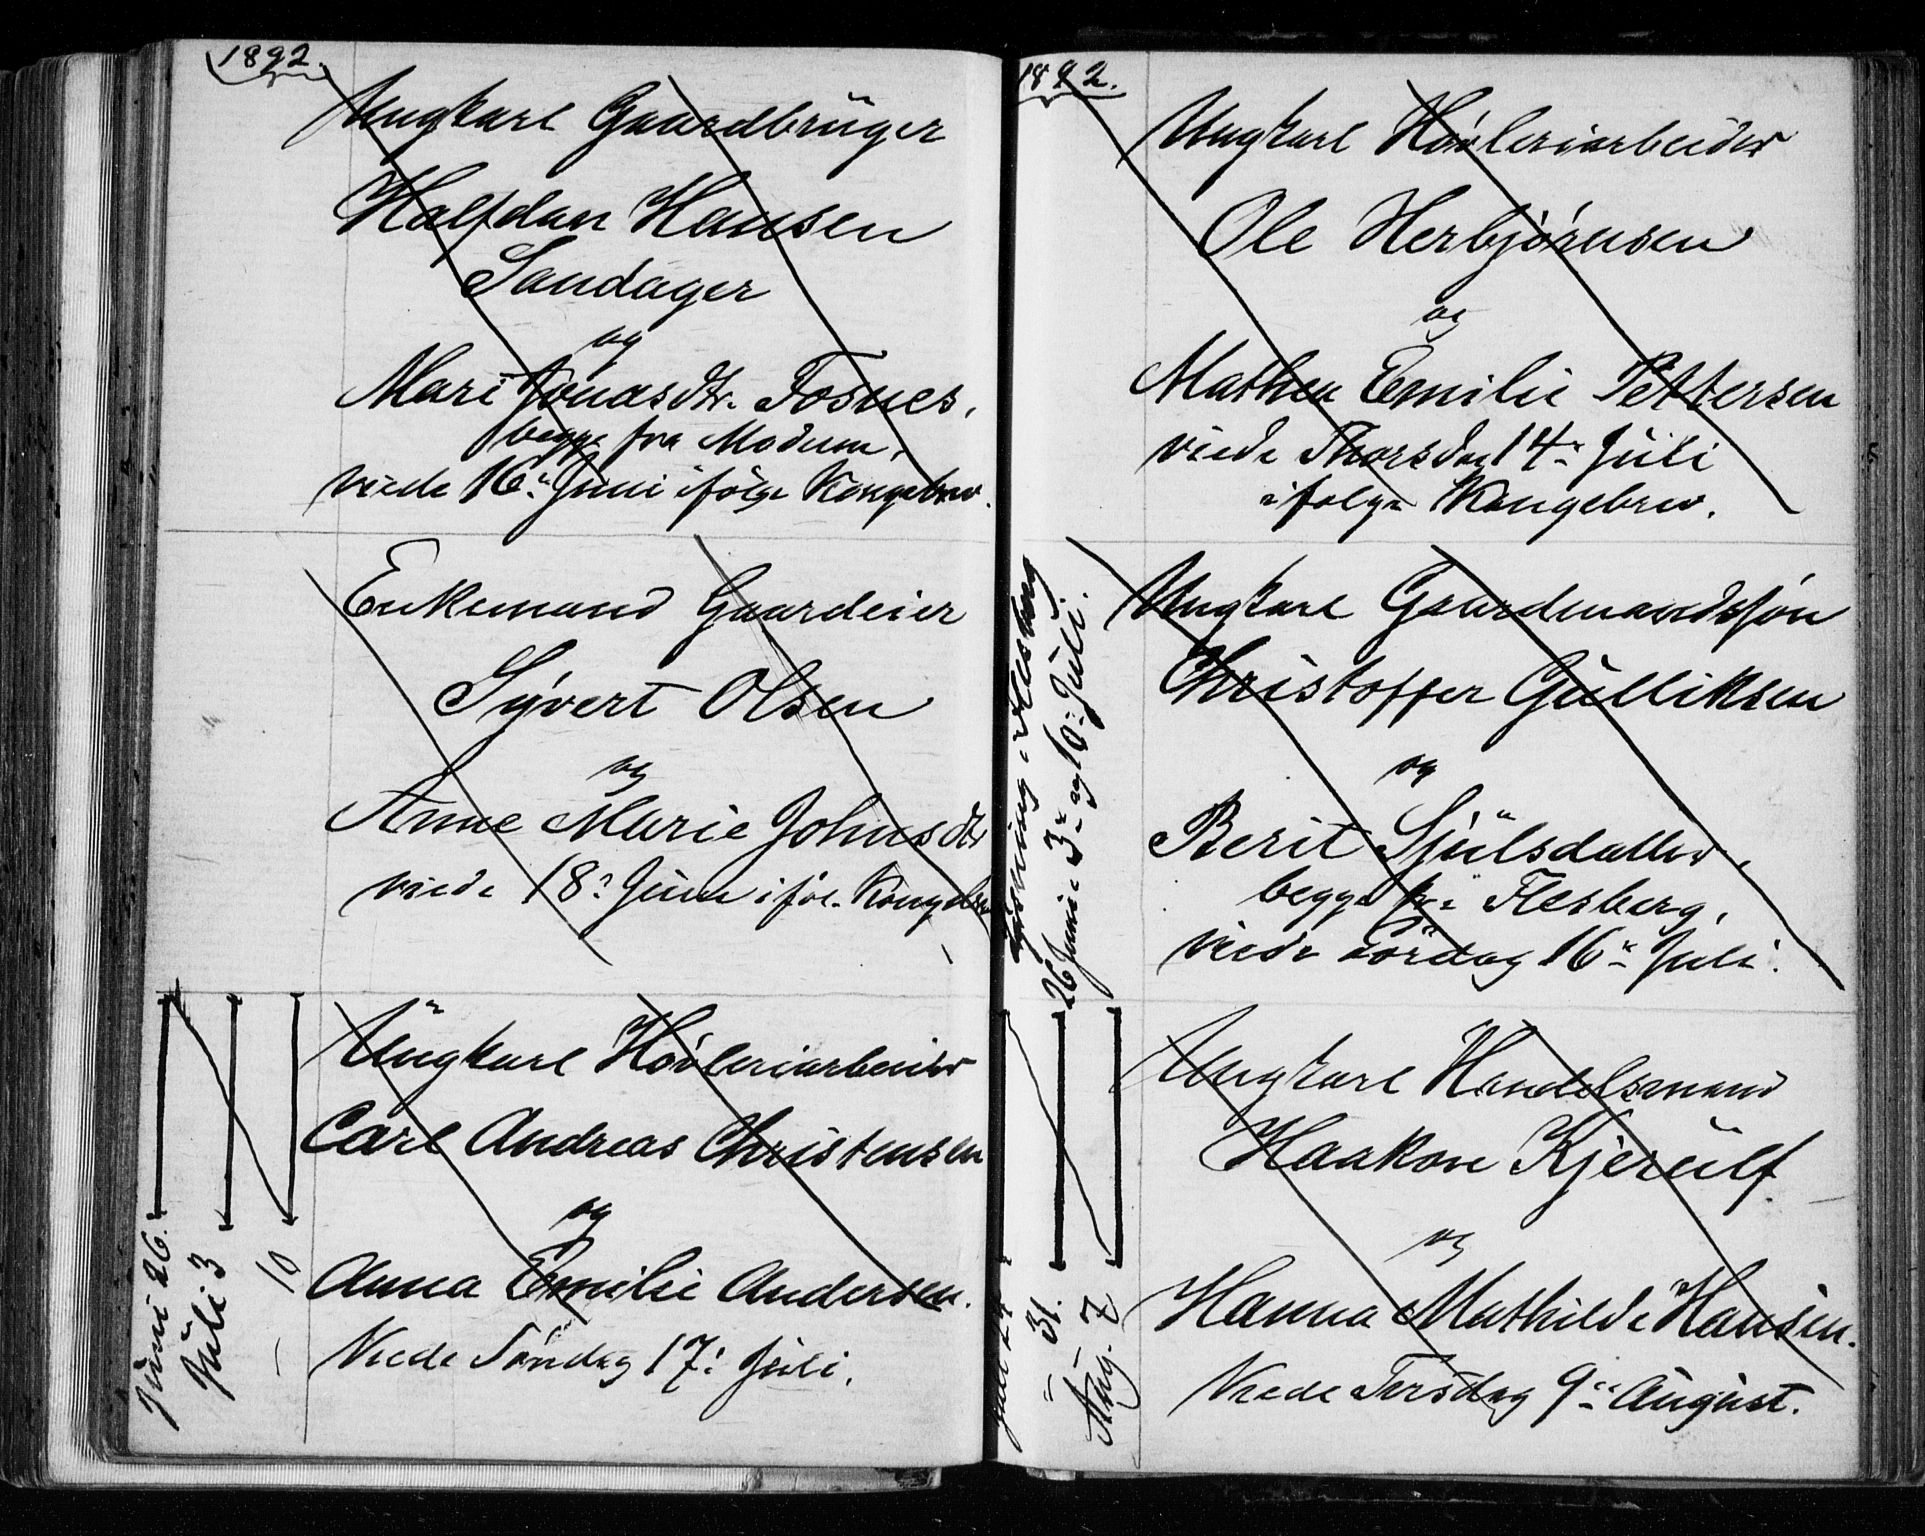 1892.
Ungkarl Gaardbrüger
Halfdan Hansen
Sandager
og
Mari Jonasdtr. Fosnes,
begge fra Modum,
viede 16: Juni ifølge Kongebrev.
Enkemand Gaardeier
Syvert Olsen
og
Anne Marie Johnsdtr
viede 18: Juni iføl. Kongebrev
Juni 26.
Juli 3
— 10
Ungkarl Høvleriarbeider
Carl Andreas Christensen
og
Anna Emilie Andersen.
Viede Søndag 17: Juli.
1892.
Ungkarl Høvleriarbeider
Ole Herbjørnsen
og
Mathea Emilie Pettersen
viede Thorsdag 14: Juli
ifølge Kongebrev.
Lysning i Flesberg
26 Juni 3: og 10: Juli.
Ungkarl Gaardmandssøn
Christoffer Gulliksen
og
Berit Sjulsdatter,
begge fra Flesberg,
viede Lørdag 16: Juli.
Juli 24
" 31.
Aug. 7
Ungkarl Handelsmand
Haakon Kjerülf
og
Hanna Mathilde Hansen.
Viede Tirsdag 9: August.